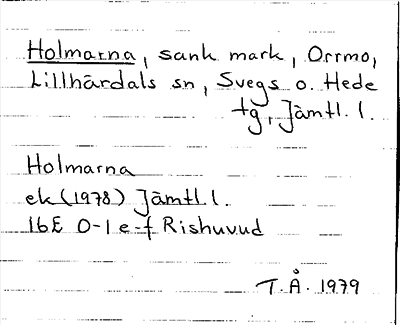 Holmarna, sank mark, Orrmo,
Lillhärdals sn, Svegs o. Hede
tg, Jämtl. l.
Holmarna
ek (1978) Jämtl. l.
16E 0-1 e-f Rishuvud
T.Å. 1979